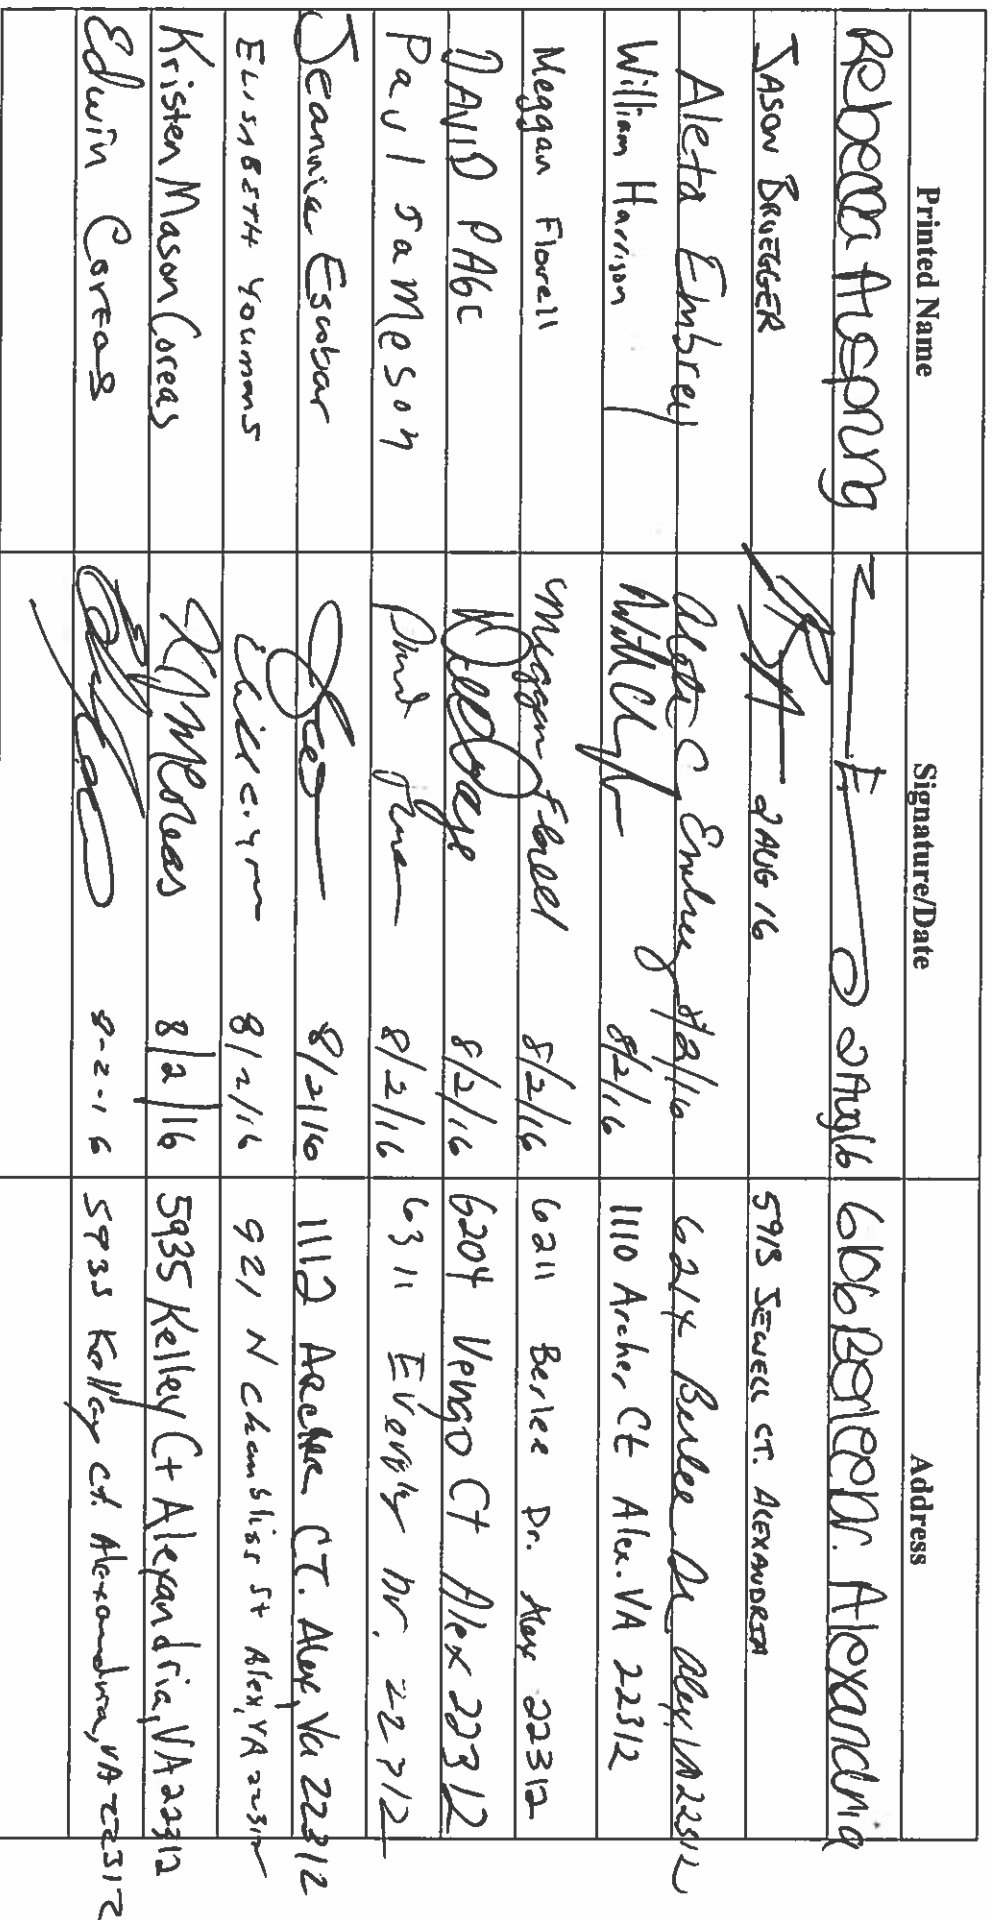 Printed Name Signature/Date Address
Rebecca Aespurg 2 Aug 16 6106 Berlee Dr. Alexandria
JASON BRUEGGER 2 AUG 16 5918 JEWELL CT. ALEXANDRIA
Aleta Embrey Aleta C Embrey 8/2/16 6214 Berlee Dr Alex, VA 22312
William Harrison 8/2/16 1110 Archer Ct Alex. VA 22312
Meggan Florell Meggan Florell 8/2/16 6211 Berlee Dr. Alex 22312
DAVID PAGE 8/2/16 6204 Vengo Ct Alex 22312
Paul Jameson 8/2/16 6311 Everly Dr. 22312
Jeannie Escobar 8/2/16 1112 Archer CT. Alex, Va 22312
ELISABETH Youmans 8/2/16 921 N Chambliss St Alex, VA 22312
Kristen Mason Coreas 8/2/16 5935 Kelley Ct Alexandria, VA 22312
Edwin Coreas 8-2-16 5935 Kelley Ct. Alexandria, VA 22312